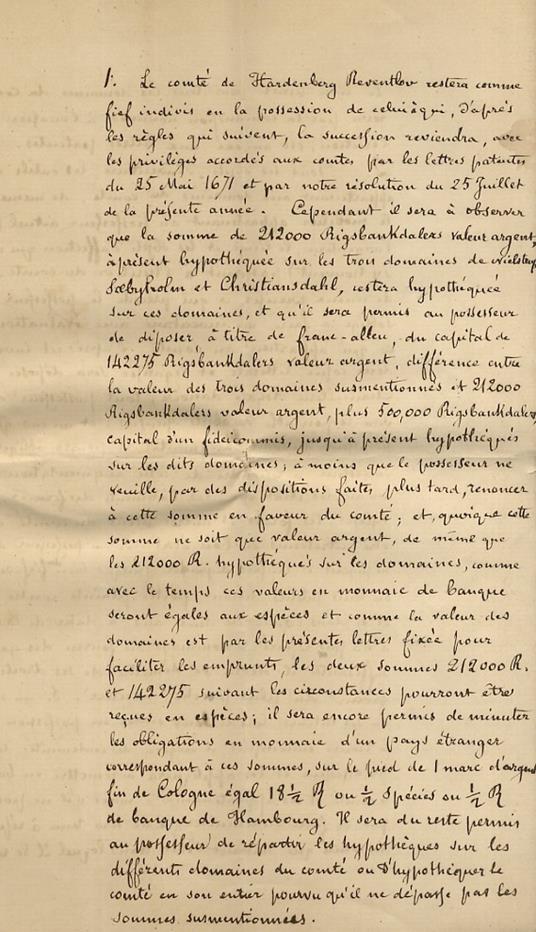 1. Le comté de Hardenberg Reventlov restera comme
fief indivis en la possession de celui à qui, d'après
les règles qui suivent, la succession reviendra, avec
les privilèges accordés aux comtes par les lettres patentes
du 25 Mai 1671 et par notre résolution du 25 Juillet
de la présente année. Cependant il sera à observer
que la somme de 212000 Rigsbankdalers valeur argent,
à présent hypothéquée sur les trois domaines de
Sæbyholm et Christiansdahl, restera hypothéquée
sur ces domaines, et qu'il sera permis au possesseur
de disposer, à titre de franc-alleu, du capital de
142275 Rigsbankdalers valeur argent, différence entre
la valeur des trois domaines susmentionnés et 212000
Rigsbankdalers valeur argent, plus 500,000 Rigsbankdalers,
capital d'un fideicommis, jusqu'à présent hypothéqués
sur les dits domaines; à moins que le possesseur ne
veuille, par des dispositions faites plus tard, renoncer
à cette somme en faveur du comté; et, quoique cette
somme ne soit que valeur argent, de même que
les 212000 R. hypothéqués sur les domaines, comme
avec le temps ces valeurs en monnaie de banque
seront égales aux espèces et comme la valeur des
domaines est par les présentes lettres fixée pour
faciliter les emprunts, les deux sommes 212000 R.
et 142275 suivant les circonstances pourront être
reçues en espèces; il sera encore permis de minuter
les obligations en monnaie d'un pays étranger
correspondant à ces sommes, sur le pied de 1 marc d'argent
fin de Cologne égal 18½ R ou ½ Spécies ou ½ R
de banque de Hambourg. Il sera du reste permis
au possesseur de répartir les hypothèques sur les
différents domaines du comté ou d'hypothéquer le
comté en son entier pourvu qu'il ne dépasse pas les
sommes susmentionnées.